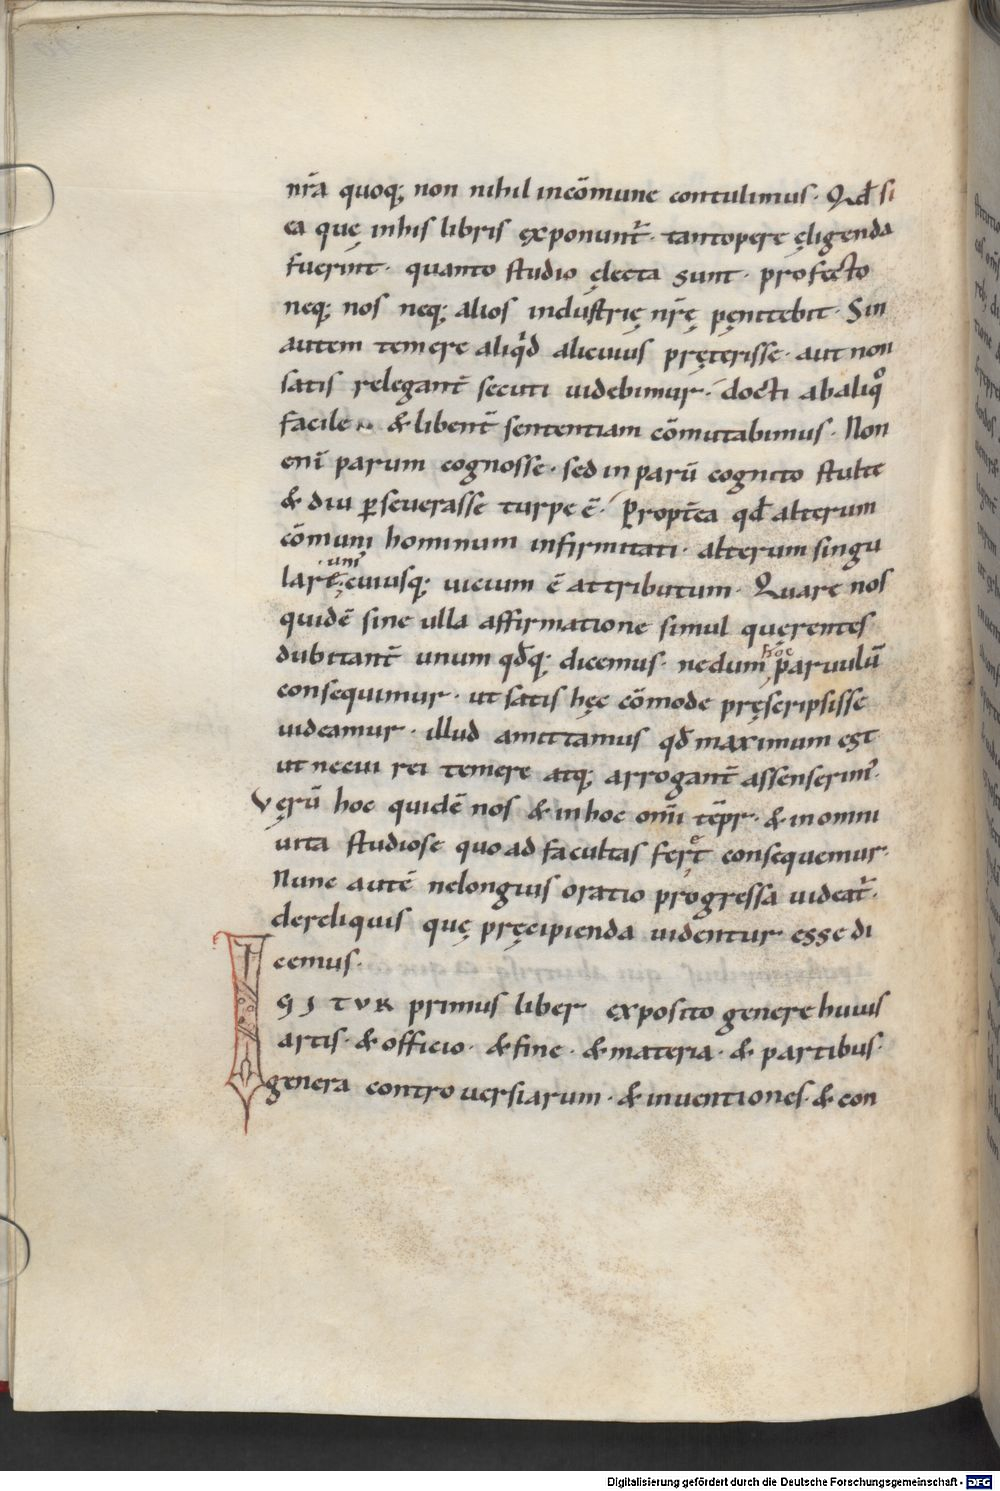 nr̄a quoq; non nihil in cōmune contulimus · Qd̄ si
ea quę in his libris exponunt᷑ · tantopere ęligenda
fuerint · quanto studio ęlecta sunt · profecto
neq; nos neq; alios industrię nr̄ę pęnitebit · Sin
autem temere aliqd̄ alicuius pręterisse · aut non
satis relegant̄ secuti uidebimur · docti ab aliqͦ
facile & libent̄ sententiam cōmutabimus · Non
enī parum cognosse · sed in parū cognito stulte
& diu ꝑseuerasse turpe ē · Propt̄ea qd̄ alterum
cōmuni hominum infirmitati · alterum singu
lari uni cuiusq; uicium ē attributum · Quare nos
quidē sine ulla affirmatione simul querentes
dubitant̄ unum qd̄q; dicemus · nedum hoc paruulū
consequimur · ut satis hęc cōmode pręscripsisse
uideamur · illud amittamus qd̄ maximum est
ut ne cui rei temere atq; arrogant̄ assenserim᷒ ·
Vęrū hoc quidē nos & in hoc om̄i tēpr · & in omni
uita studiose quo ad facultas feret consequemur ·
Nunc autē ne longius oratio progressa uideat᷑ ·
de reliquis quę pręcipienda uidentur esse di
cemus ·
IGITVR primus liber exposito genere huius
artis · & officio · & fine · & materia · & partibus ·
genera controuersiarum · & inuentiones · & con
Digitalisierung gefördert durch die Deutsche Forschungsgemeinschaft - DFG